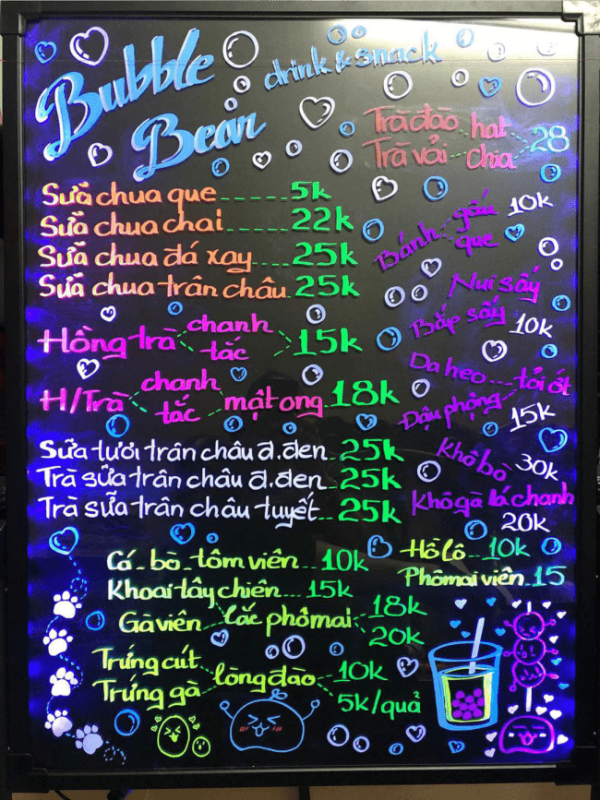 Bubble
Bean
drink & snack
Trà đào hạt 28
Trà vải chia
Sữa chua que 5k
Sữa chua chai 22k
Sữa chua đá xay 25k
Sữa chua trân châu 25k
Hồng trà chanh 15k
tắc
H/Trà chanh mật ong 18k
tắc
Sữa tươi trân châu đ.đen 25k
Trà sữa trân châu đ.đen 25k
Trà sữa trân châu tuyết 25k
Bánh gấu 10k
que
Nui sấy
Bắp sấy 10k
Da heo tỏi ớt
Đậu phộng 15k
Khô bò 30k
Khô gà lá chanh
20k
Cá_bò_tôm viên 10k
Khoai tây chiên 15k
Gà viên lắc phômai 18k
20k
Hồ lô 10k
Phômai viên 15
Trứng cút lòng đào 10k
Trứng gà 5k/quả